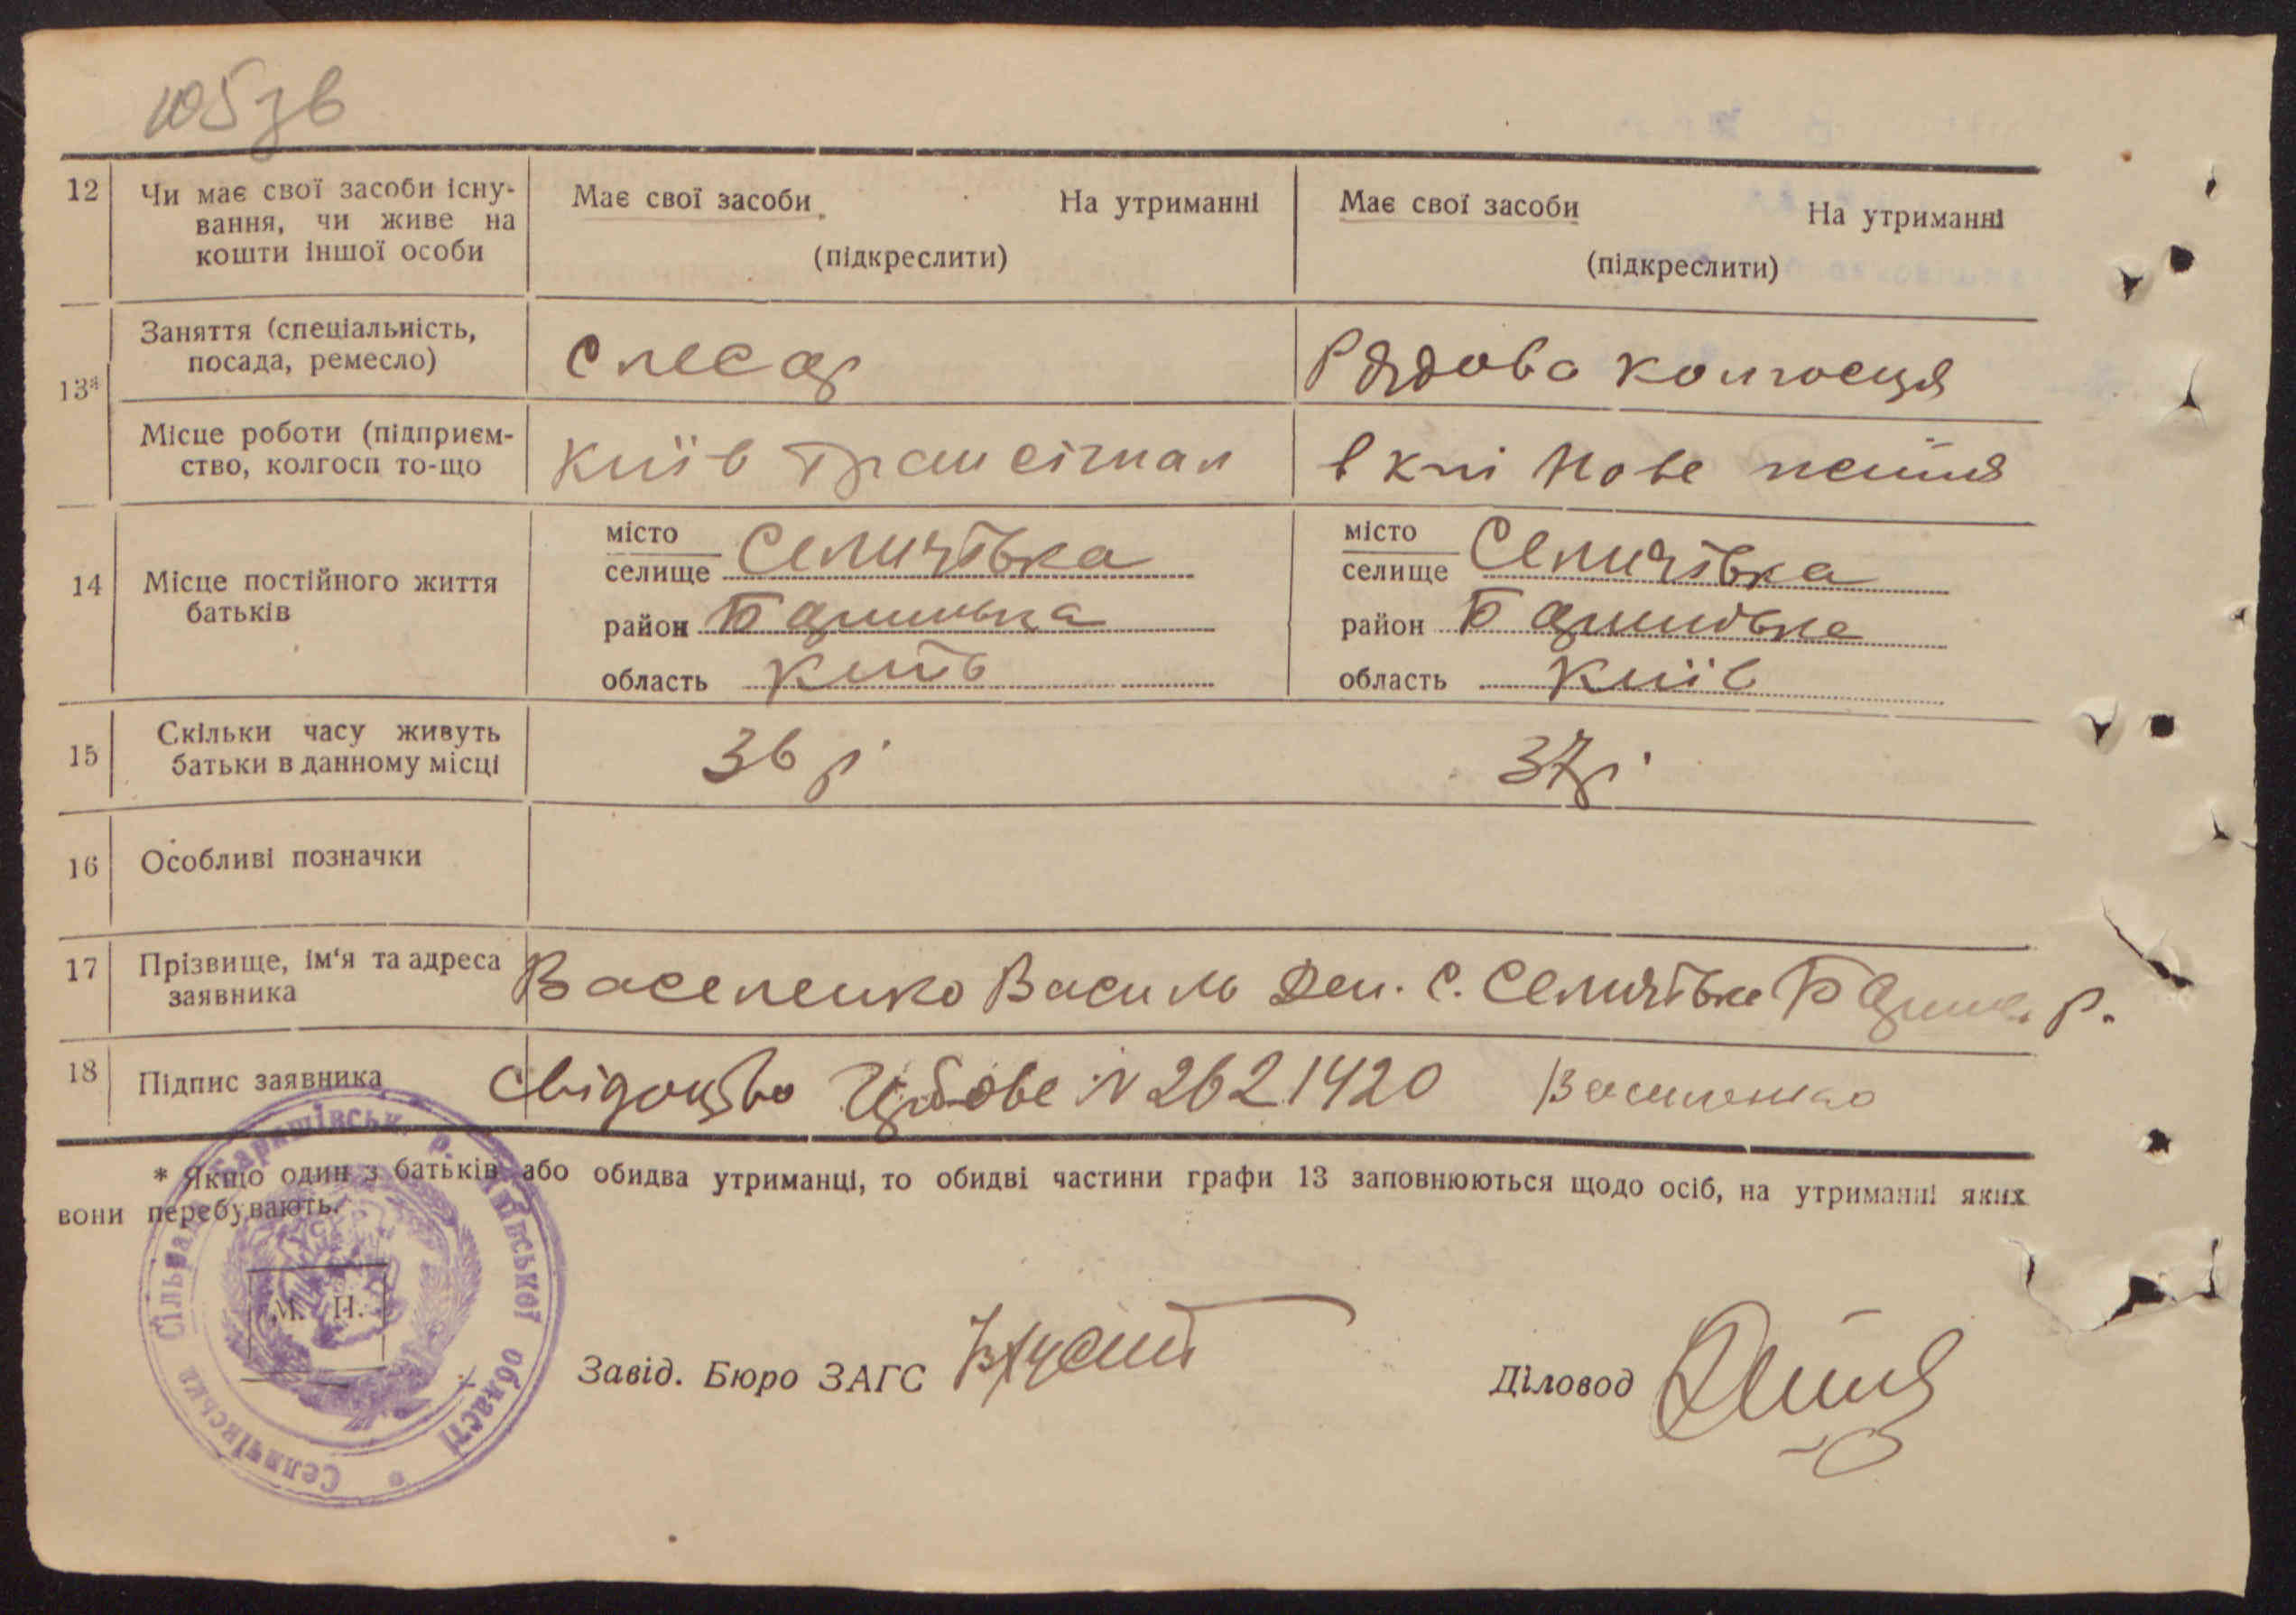 105 зв
12 Чи має свої засоби існу- Має свої засоби На утриманні Має свої засоби На утриманні
вання, чи живе на
кошти іншої особи (підкреслити) (підкреслити)
13* Заняття (спеціальність, слесар Рядова колгосця
посада, ремесло)
Місце роботи (підприєм- Київ Трансігнал в к-пі Нове життя
ство, колгосп то-що
14 Місце постійного життя батьків
місто
селище Селичівка
район Баришівка
область Київ
місто
селище Селичівка
район Баришівка
область Київ
15 Скільки часу живуть 36 р 37 р
батьки в данному місці
16 Особливі позначки
17 Прізвище, ім'я та адреса Васеленко Василь Дем. с. Селичівка Бариш. р.
заявника
18 Підпис заявника свідоцтво N 2621420 Василенко
* Якщо один з батьків або обидва утриманці, то обидві частини графи 13 заповнюються щодо осіб, на утриманні яких
вони перебувають.
Селичівська Сільрада Баришівськ. р. Київської області *
УСРР
М. П.
Завід. Бюро ЗАГС
Діловод